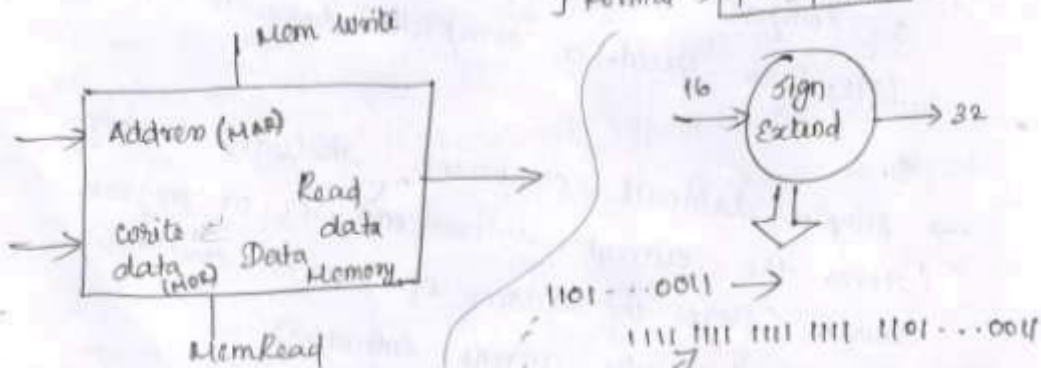 Mem Write
Address (MAR)
Read
data
Write
data
(MDR)
Data
Memory.
MemRead
16
Sign
Extend
32
1101...0011
1111 1111 1111 1111 1101...0011